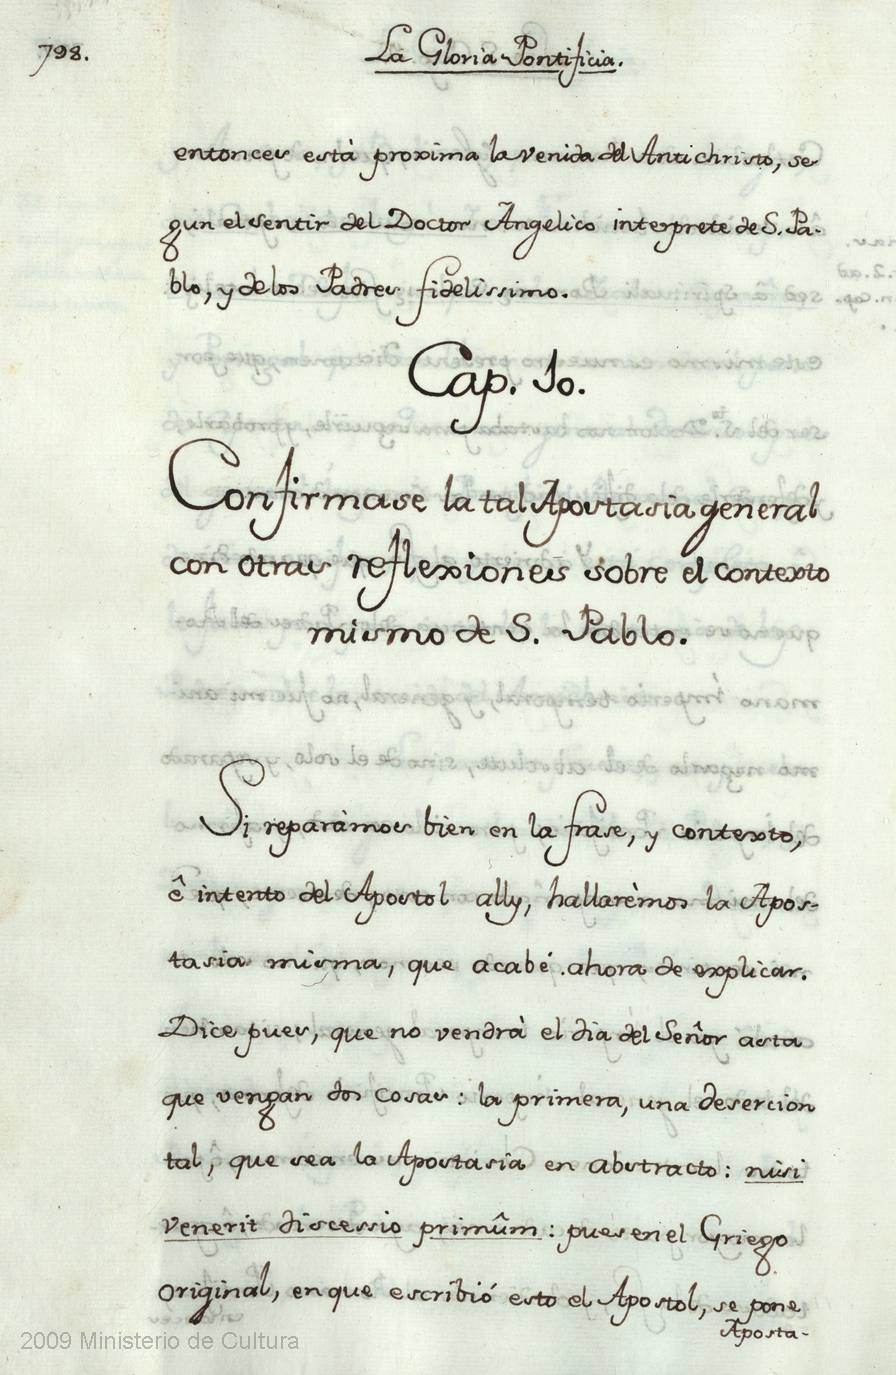 798.
La Gloria Pontificia.
entonces està proxima la venida del Antichristo, se
gun el sentir del Doctor Angelico interprete de S. Pa-
blo, y de los Padres fidelissimo.
Cap. 10.
Confirmase la tal Apostasia general
con otras reflexiones sobre el contexto
mismo de S. Pablo.
Si reparàmos bien en la frase, y contexto,
ê intento del Apostol ally, hallarèmos la Apos-
tasia misma, que acabé ahora de explicar.
Dice pues, que no vendrà el dia del Señor asta
que vengan dos cosas: la primera, una desercion
tal, que sea la Apostasia en abstracto: nisi
venerit discessio primûm: pues en el Griego
original, en que escribió esto el Apostol, se pone
Aposta-
2009 Ministerio de Cultura